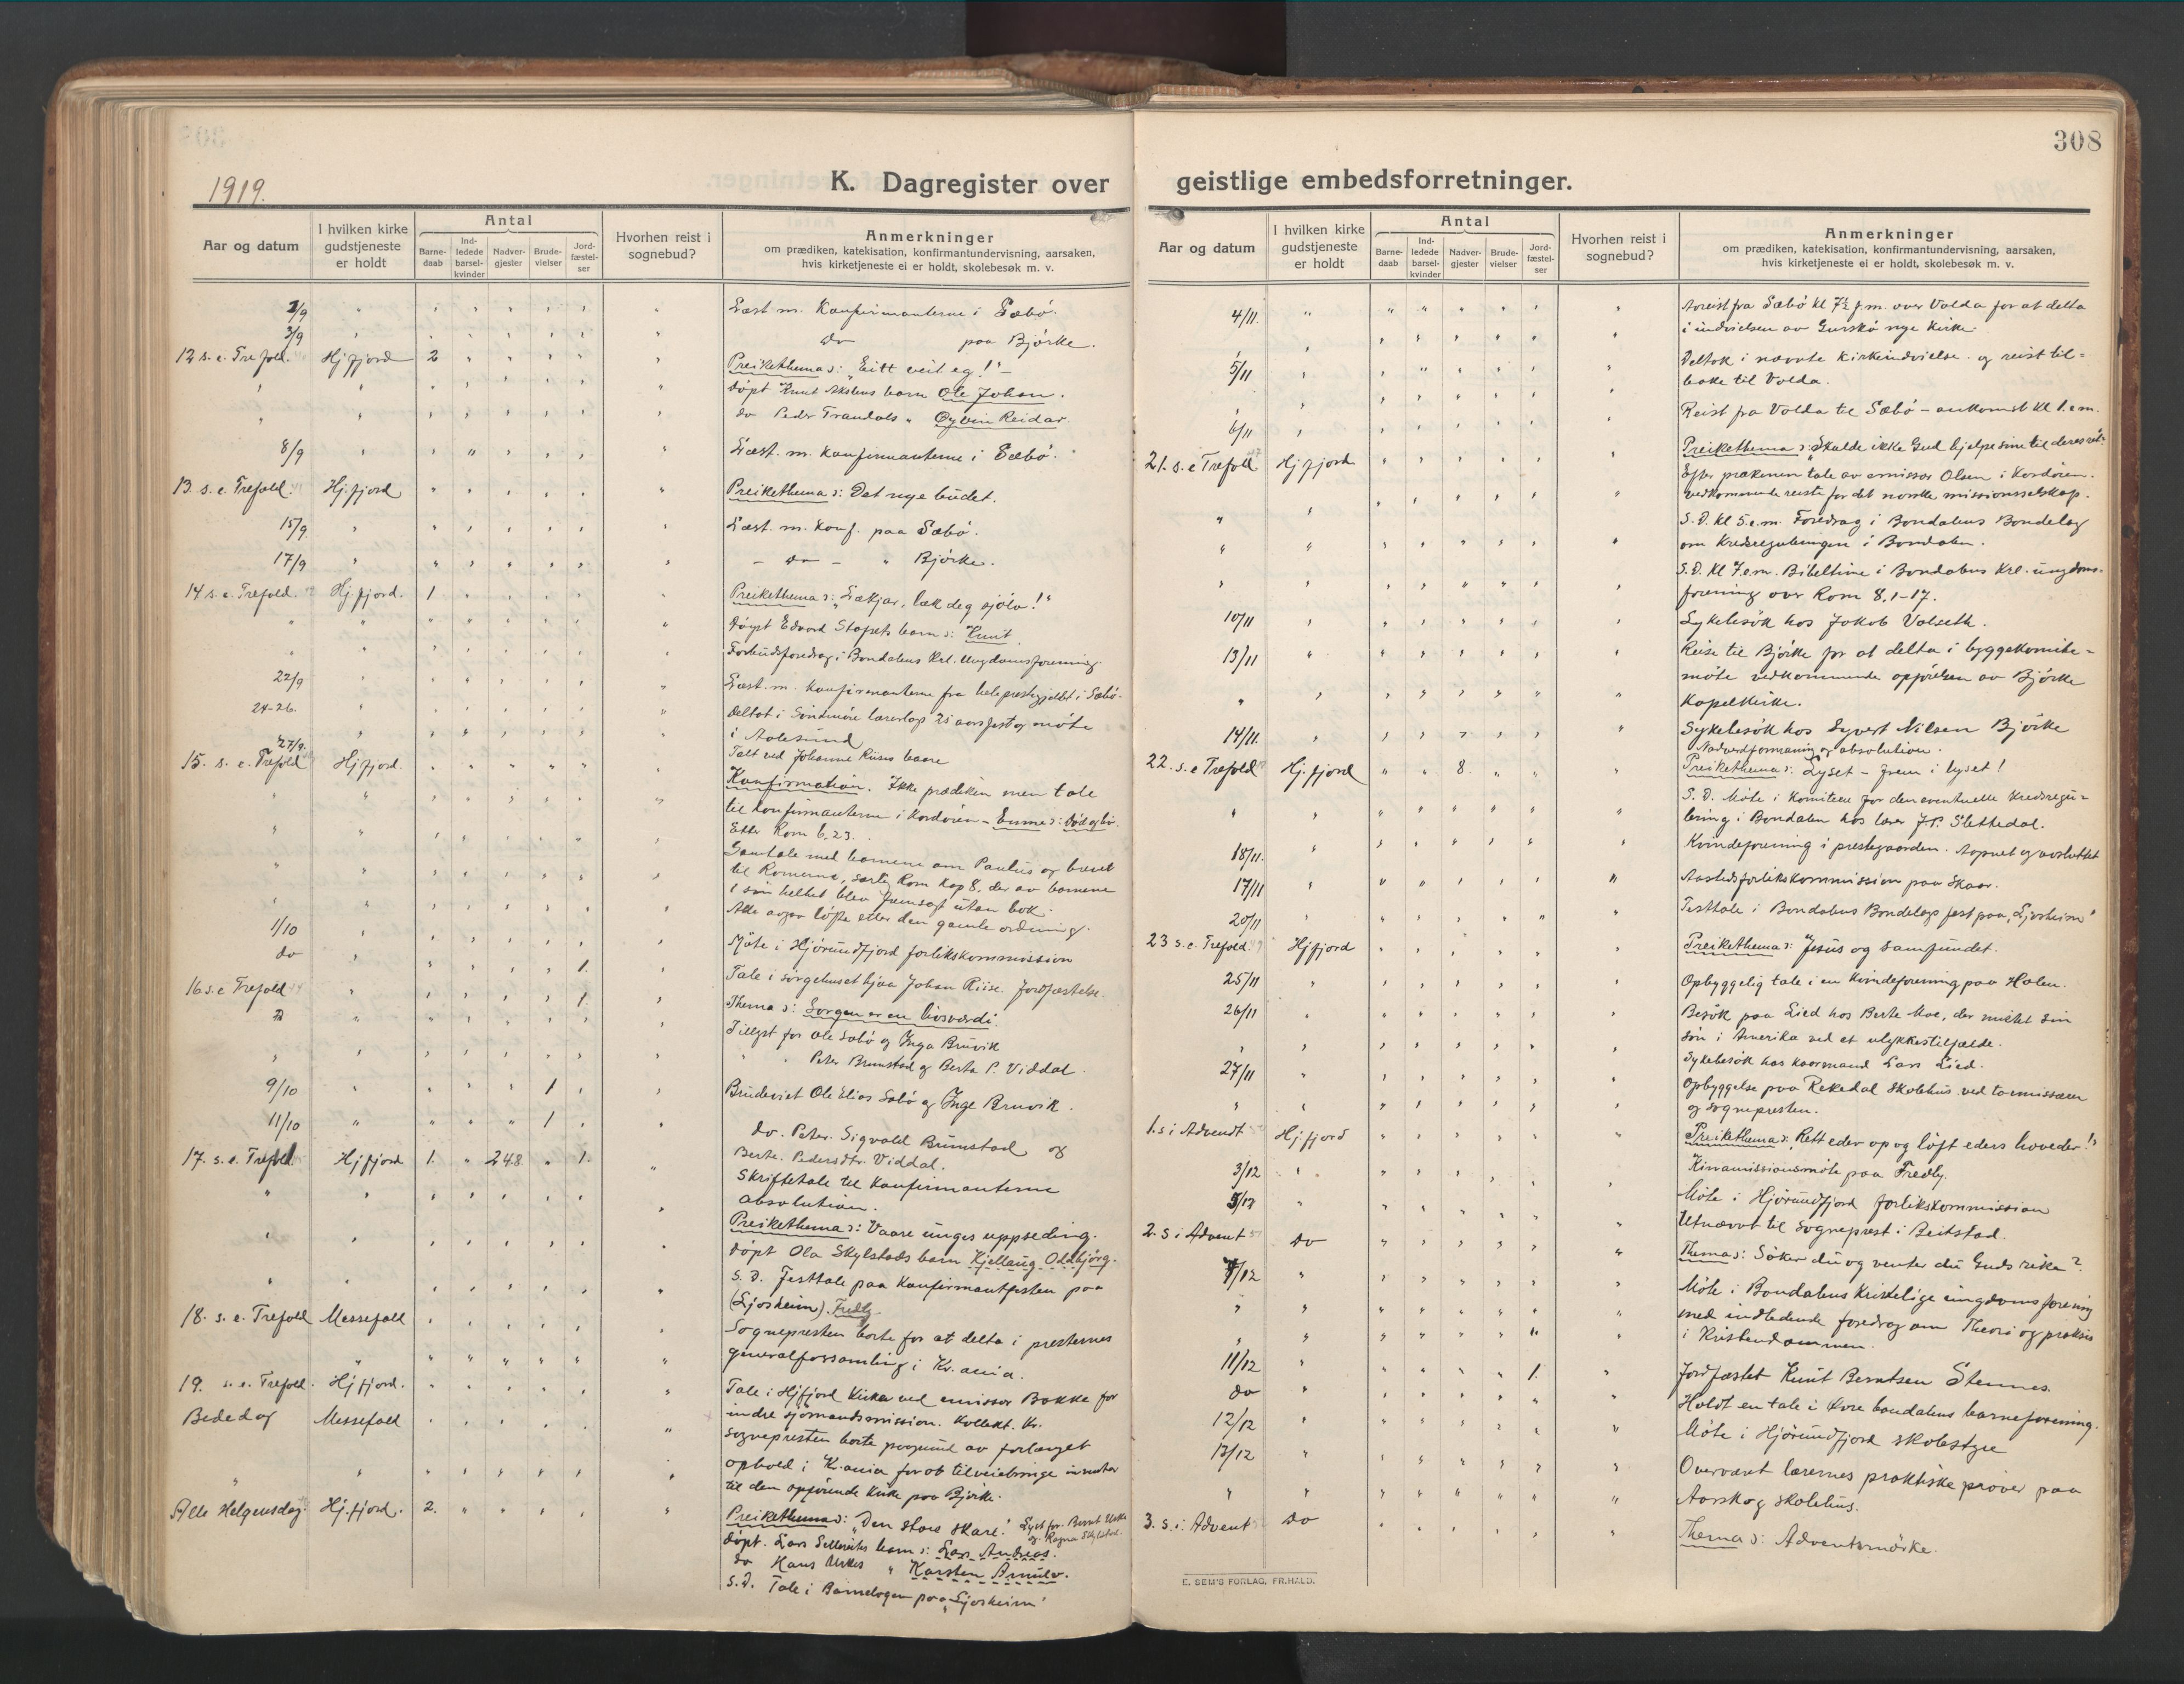 308
1919.
K. Dagregister over geistlige embedsforretninger.
Aar og datum
I hvilken kirke gudstjeneste er holdt
Antal
Barne-daab
Ind-ledede barsel-kvinder
Nadver-gjester
Brude-vielser
Jord-fæstel-ser
Hvorhen reist i sognebud?
Anmerkninger
om prædiken, katekisation, konfirmantundervisning, aarsaken,
hvis kirketjeneste ei er holdt, skolebesøk m. v.
2/9 Læst m. Konfirmanterne i Sæbö.
3/9 do paa Bjørke.
12 s. e. Trefold. Hj.fjord 2 Preikethema ɔ: „Eitt veit eg!" –
döpt Knut Akslens barn Ole Johan.
do Peder Trandals „ Øyvin Reidar.
8/9 Læst. m. Konfirmanterne i Sæbö.
13. s. e. Trefold. Hj.fjord Preikethema ɔ: Det nye budet.
15/9 Læst. m. Konf. paa Sæbö.
17/9 – do – „ Bjørke.
14 s. e. Trefold. Hj.fjord. 1 Preikethema ɔ: „Lækjar, læk deg sjölv!"
döypt Edvard Stapets barn ɔ: Knut
Forbudsforedrag i Bondalens Krl. Ungdomsforening.
22/9 Læst. m. Konfirmanterne fra hele prestegjeldet i Sæbö.
24-26. Deltat i Söndmöre lærerlags 25 aars fest og möte
i Aalesund
27/9. Talt ved Johanne Riises baare
15. s. e. Trefold Hj.fjord. Konfirmation. Ikke prædiken men tale
til konfirmanterne i Kordören – Emne ɔ: Död og liv.
Efter Rom 6.23.
Samtale med barnene om Paulus og brevet
til Romerne, særlig Rom Kap 8, der av barnene
i sin helhet blev fremsagt utan bok.
Alle avgav löfte etter den gamle ordning.
1/10 Möte i Hjörundfjord forlikskommission
do 1. Tale i sörgehuset hjaa Johan Riise. Jordfæstelse.
16 s. e Trefold 1. Thema ɔ: Sorgen er en livsværdi.
Tillyst for Ole Sæbö og Inga Bruvik
„ „ Peter Brunstad og Berta P. Viddal.
9/10 1 Brudeviet Ole Elias Sæbö og Inge Bruvik.
11/10 1 do. Peter. Sigvald Brunstad og
Berte. Pedersdtr. Viddal.
17. s. e. Trefold Hj fjord 1. 248. 1. Skriftetale til Konfirmanterne
absolution.
Preikethema ɔ: Vaare unges uppseding.
döpt Ola Skylstads barn Kjellaug Oddbjörg.
S. D. Festtale paa Konfirmantfesten paa
(Ljosheim). Fredly.
18. s. e. Trefold Messefald Sognepresten borte for at delta i presternes
generalforsamling i Kr.ania.
19. s. e. Trefold. Hj fjord. Tale i Hjfjord Kirke ved emissær Bakke for
indre sjömandsmission. Kollekt. Kr.
Bededag Messefald Sognepresten borte paagrund av forlænget
ophold i Kr.ania for at tilveiebringe
til den opförende kirke paa Bjørke.
Alle Helgensdag. Hj.fjord. 2. Preikethema ɔ: „Den store skare." Lyst for. Bernt Urke
og. Ragna Skylstad.
döpt. Lars barn ɔ: Lars Andreas.
do Hans Urkes „ Karsten Arnulv.
S.D. Tale i Barnelogen paa „Ljosheim"
Aar og datum
I hvilken kirke gudstjeneste er holdt
Antal
Barne-daab
Ind-ledede barsel-kvinder
Nadver-gjester
Brude-vielser
Jord-fæstel-ser
Hvorhen reist i sognebud?
Anmerkninger
om prædiken, katekisation, konfirmantundervisning, aarsaken,
hvis kirketjeneste ei er holdt, skolebesøk m. v.
4/11. Avreist fra Sæbö kl 7½ f.m. over Volda for at delta
i indvielsen av Gurskö nye Kirke.
5/11 Deltok i nævnte kirkeindvielse. og reist til=
bake til Volda.
6/11 Reist fra Volda til Sæbö – ankomst kl 1. e.m.
21. s. e Trefold Hj.fjord Preikethema ɔ: „Skulde ikke Gud hjelpe sine til deres ret.
Efter prækenen tale av emissær Olsen i Kordören.
vedkommende reiste for det norske missionsselskap.
S. D. Kl 5. e.m. Foredrag i Bondalens Bondelag
om Kredsreguleringen i Bondalen.
S. D. Kl 7. e.m. Bibeltime i Bondalens Krl. ungdoms-
forening over Rom 8, 1-17.
10/11 Sykebesök hos Jakob Valseth.
13/11 Reise til Bjørke for at delta i byggekomite-
möte vedkommende opförelsen av Bjørke
Kapelkirke.
14/11. Sykebesök hos Syvert Nilsen Bjørke
Nadverdformaning og absolution.
22. s. e Trefold Hj. fjord 8. Preikethema ɔ: Lyset – frem i lyset!
S. D. Möte i Komiteen for den eventuelle Kredsregu=
lering i Bondalen hos lærer J. P. Slettedal.
18/11. Kvindeforening i prestegaarden. Aapnet og avsluttet
17/11 Aastedsforlikskommission paa Skaar.
20/11 Festtale i Bondalens Bondelags fest paa „Ljosheim"
23 s. e. Trefold. Hjfjord Preikethema ɔ: „Jesus og samfundet.
25/11 Opbyggelig tale i en Kvindeforening paa Holen.
26/11 Besök paa Lied hos Berte Moe, der mistet sin
sön i Amerika ved et ulykkestilfælde.
Sykebesök hos kaarmand Lars Lied.
27/11 Opbyggelse paa Rekedal Skolehus ved to emissærer
og sognepresten.
1. s i Advendt Hj.fjord Preikethema ɔ: „Rett eder op og löft eders hoveder!"
3/12 Kinamissionsmöte paa Fredly.
Möte i Hjörundfjord forlikskommission
Utnævnt til Sogneprest i Beitstad.
2. S i Advent Do Thema ɔ: Söker du og venter du Guds rike?
7/12 Möte i Bondalens Kristelige ungdomsforening
med indledende foredrag om Theori og praksis
i Kristendommen.
11/12 1. Jordfæstet Knut Berntsen Stennes.
do Holdt en tale i Övre bondalens barneforening.
12/12 Möte i Hjörundfjord skolestyre
13/12 Overværet lærernes praktiske pröver paa
Aarskog skolehus.
3. s. i. Advent Do Thema ɔ: Adventsmörke.
E. SEM'S FORLAG, FR.HALD.